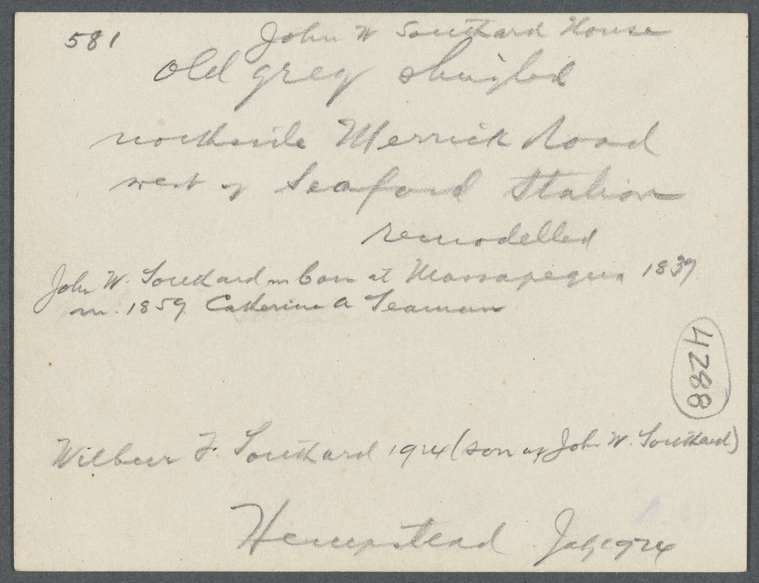 581 John W Southard House
old grey shingled
northside Merrick Road
west of Seaford Station
remodelled
John W. Southard born at Massapequa 1839
m. 1859 Catherine A Seaman
4288
Wilbur F. Southard 1924 (son of John W. Southard)
Hempstead July 1924